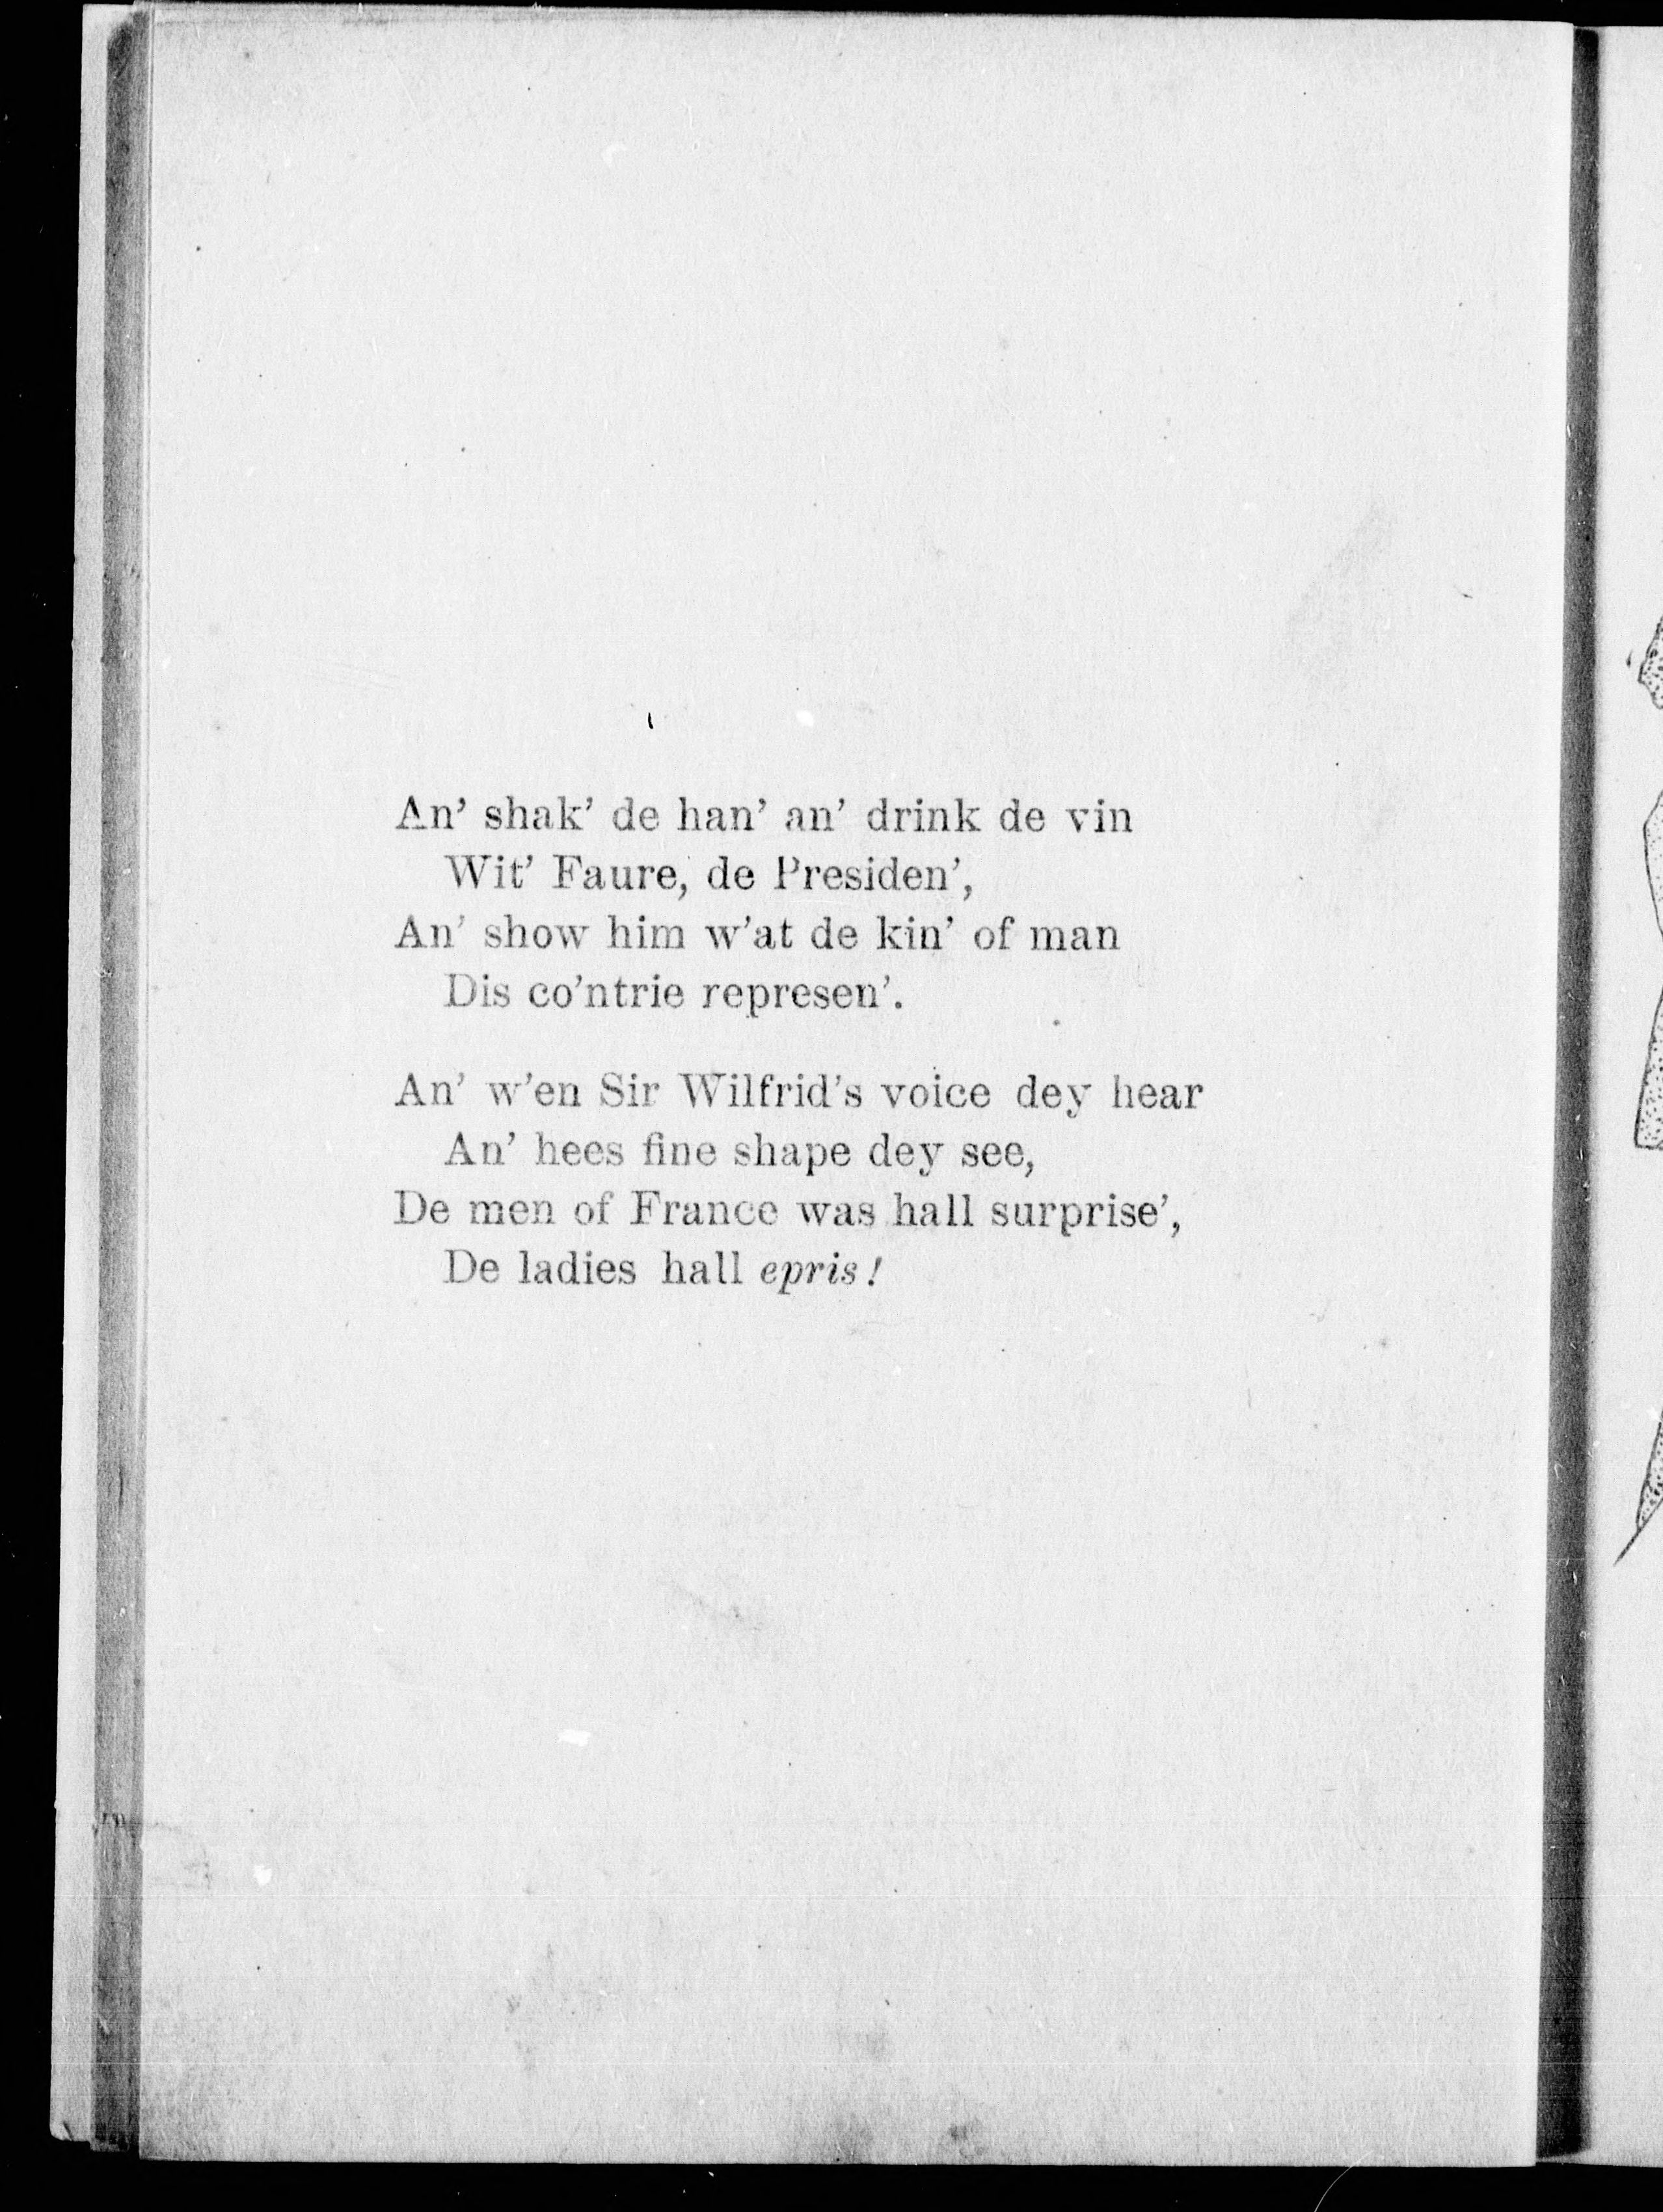 An' shak' de han' an' drink de vin
Wit' Faure, de Presiden',
An' show him w'at de kin' of man
Dis co'ntrie represen'.
An' w'en Sir Wilfrid's voice dey hear
An' hees fine shape dey see,
De men of France was hall surprise',
De ladies hall epris!